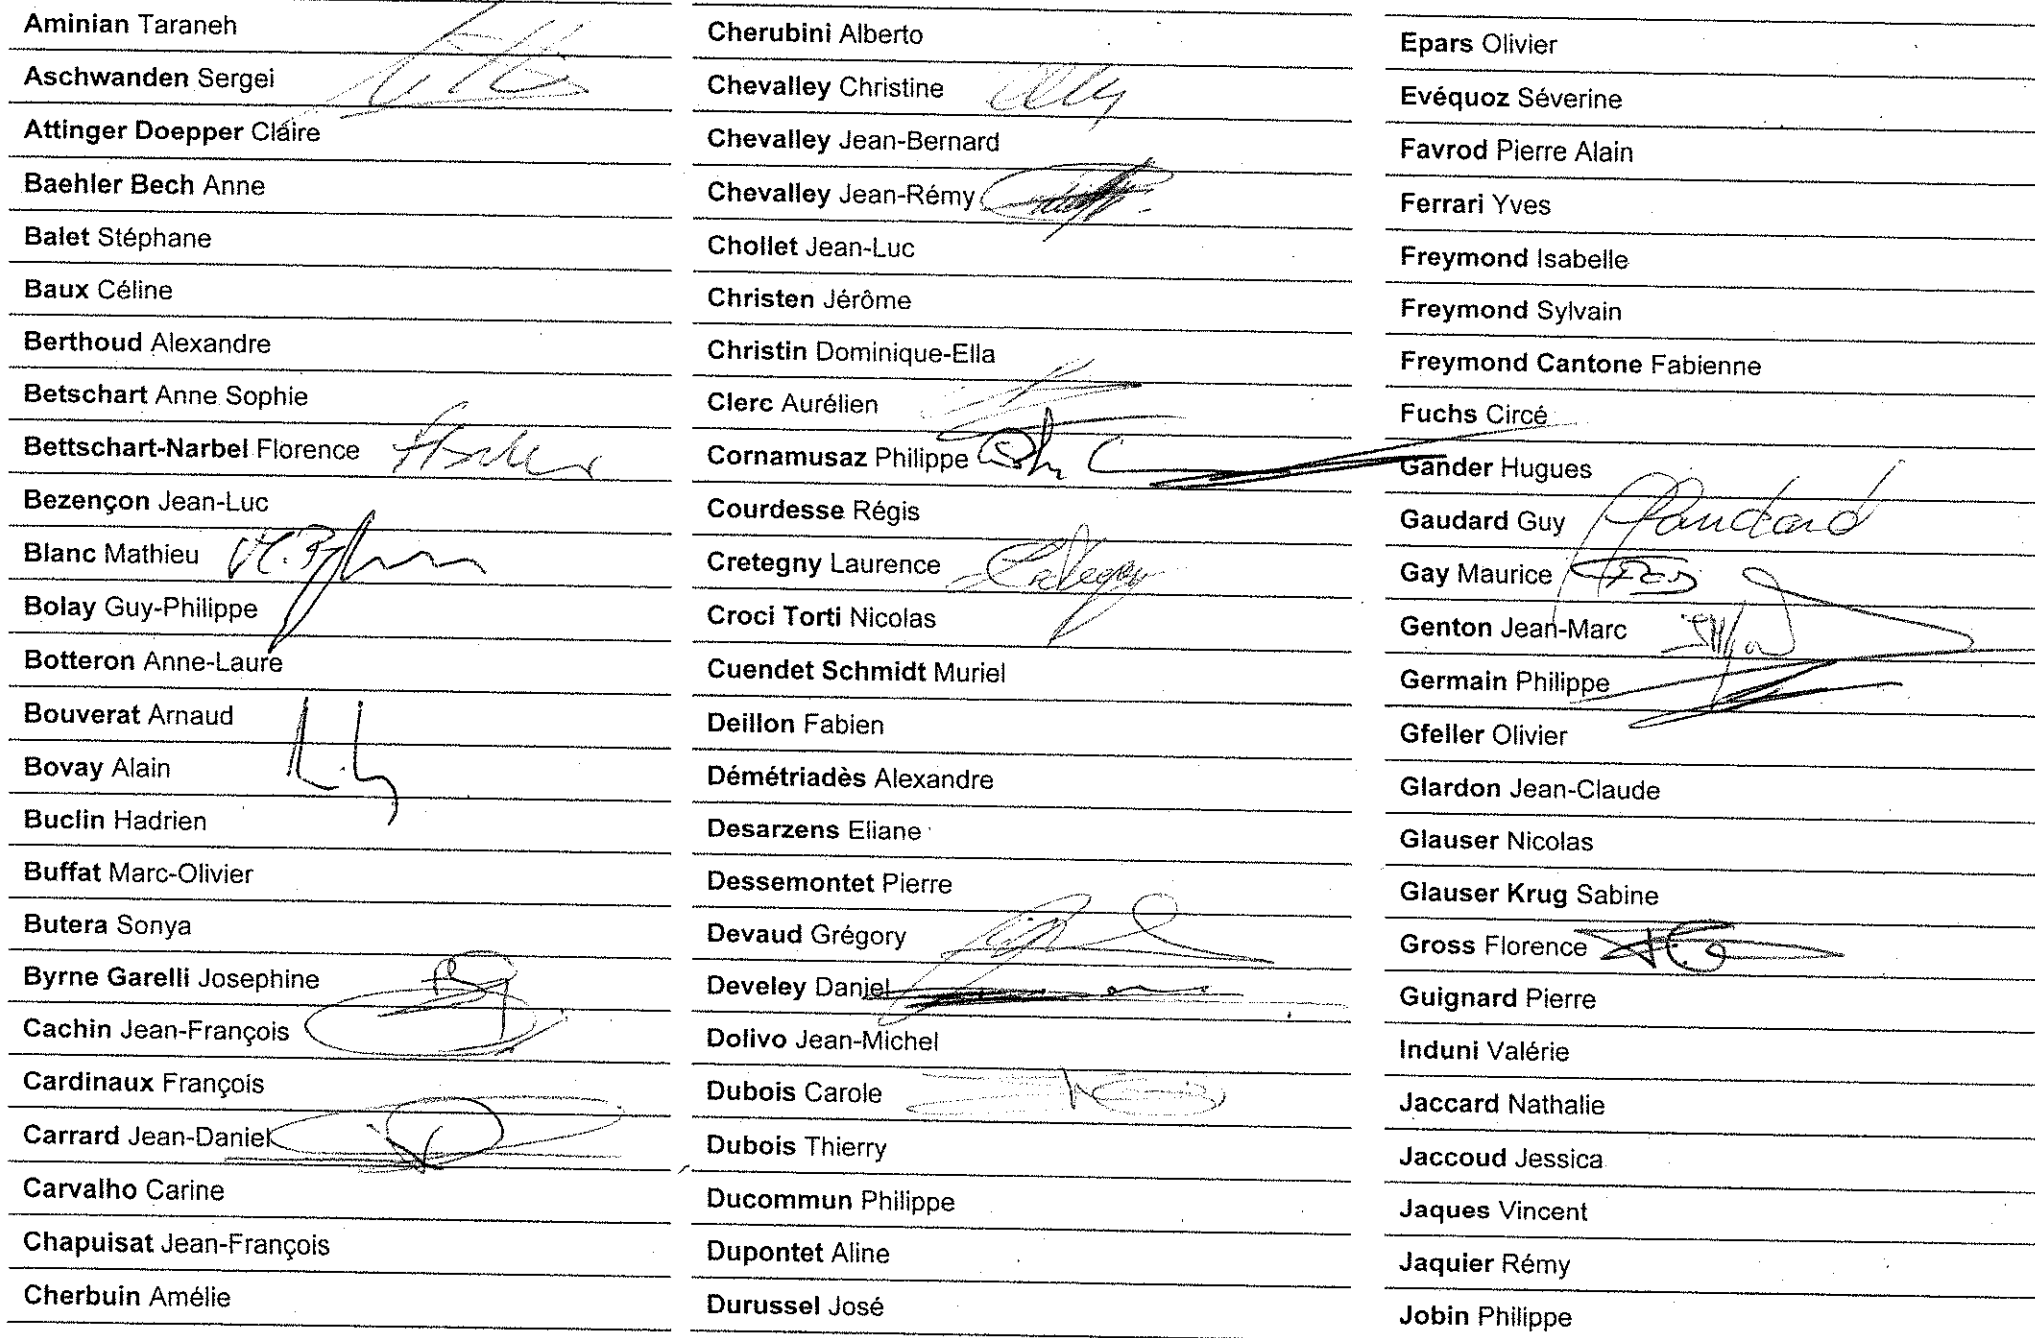 Aminian Taraneh
Aschwanden Sergei
Attinger Doepper Claire
Baehler Bech Anne
Balet Stéphane
Baux Céline
Berthoud Alexandre
Betschart Anne Sophie
Bettschart-Narbel Florence
Bezençon Jean-Luc
Blanc Mathieu
Bolay Guy-Philippe
Botteron Anne-Laure
Bouverat Arnaud
Bovay Alain
Buclin Hadrien
Buffat Marc-Olivier
Butera Sonya
Byrne Garelli Josephine
Cachin Jean-François
Cardinaux François
Carrard Jean-Daniel
Carvalho Carine
Chapuisat Jean-François
Cherbuin Amélie
Cherubini Alberto
Chevalley Christine
Chevalley Jean-Bernard
Chevalley Jean-Rémy
Chollet Jean-Luc
Christen Jérôme
Christin Dominique-Ella
Clerc Aurélien
Cornamusaz Philippe
Courdesse Régis
Cretegny Laurence
Croci Torti Nicolas
Cuendet Schmidt Muriel
Deillon Fabien
Démétriadès Alexandre
Desarzens Eliane
Dessemontet Pierre
Devaud Grégory
Develey Daniel
Dolivo Jean-Michel
Dubois Carole
Dubois Thierry
Ducommun Philippe
Dupontet Aline
Durussel José
Epars Olivier
Evéquoz Séverine
Favrod Pierre Alain
Ferrari Yves
Freymond Isabelle
Freymond Sylvain
Freymond Cantone Fabienne
Fuchs Circé
Gander Hugues
Gaudard Guy Gaudard
Gay Maurice
Genton Jean-Marc
Germain Philippe
Gfeller Olivier
Glardon Jean-Claude
Glauser Nicolas
Glauser Krug Sabine
Gross Florence
Guignard Pierre
Induni Valérie
Jaccard Nathalie
Jaccoud Jessica
Jaques Vincent
Jaquier Rémy
Jobin Philippe